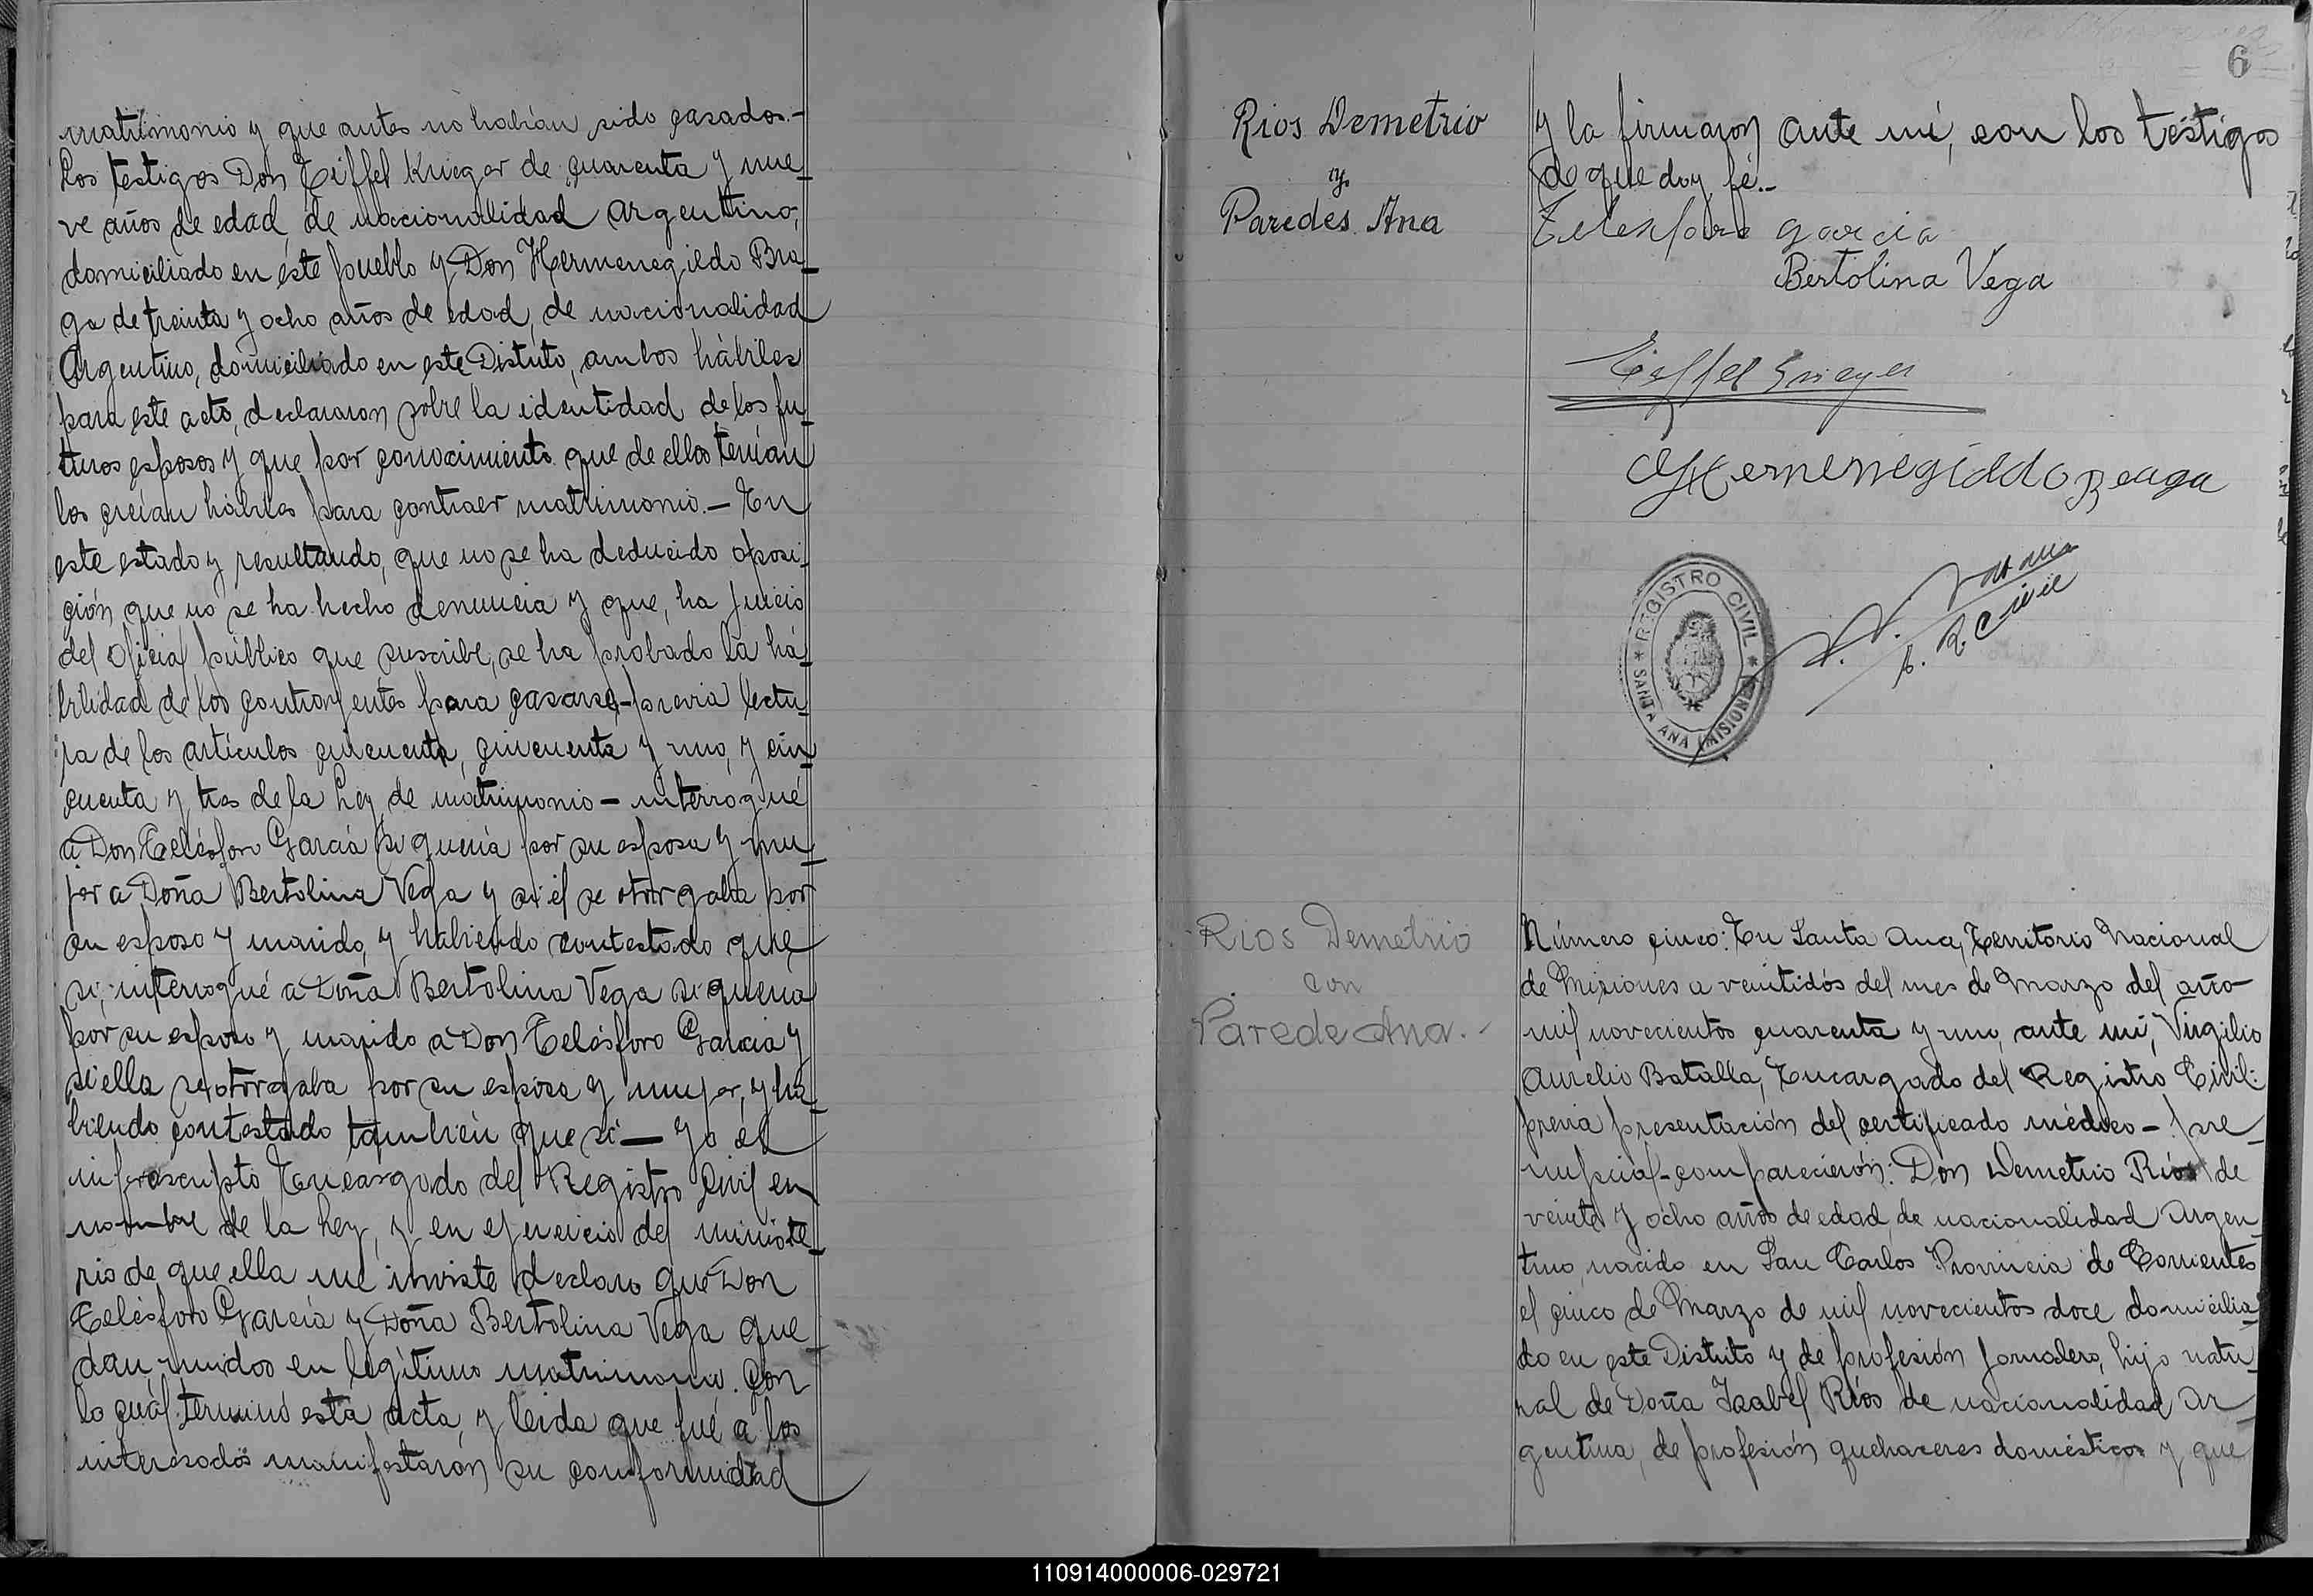 matrimonio y que antes no habían sido casados.-
Los testigos Don Eiffel Krieger de cuarenta y nue_
ve años de edad, de nacionalidad Argentino,
domiciliado en este pueblo y Don Hermenegildo Bra_
ga de treinta y ocho años de edad, de nacionalidad
Argentino, domiciliado en este Distrito, ambos hábiles
para este acto, declararon sobre la identidad de los fu_
turos esposos y que por conocimiento que de ellos tenían
los creían hábiles para contraer matrimonio.— En
este estado y resultando, que no se ha deducido oposi_
ción, que no se ha hecho denuncia y que, ha juicio
del oficial público que suscribe, se ha probado la há_
bilidad de los contrayentes para casarse-previa lectu_
ra de los artículos cincuenta, cincuenta y uno, y cin_
cuenta y tres de la Ley de matrimonio - interrogué
a Don Telésforo García si quería por su esposa y mu_
jer a Doña Bertolina Vega y si él se otorgaba por
su esposo y marido, y habiendo contestado que
si, interrogué a Doña Bertolina Vega si quería
por su esposo y marido a Don Telésforo García y
si ella se otorgaba por su esposa y mujer, y ha_
biendo contestado también que si — Yo el
infrascripto Encargado del Registro Civil en
nombre de la Ley, y en ejercicio del ministe_
rio de que ella me inviste declaro que Don
Telésforo García y Doña Bertolina Vega que_
dan unidos en legítimo matrimonio. Con
lo cuál terminó esta acta, y leída que fué a los
interesados manifestarón su conformidad
6
Rios Demetrio
y
Paredes Ana
y la firmaron ante mí, con los testigos
de que doy fé.-
Telesforo garcia
Bertolina Vega
Eiffel Krieger
Hermenegildo Braga
REGISTRO CIVIL
* SANTA ANA (MISIONES) *
R. Civil
Rios Demetrio
con
Parede Ana.-
Número cinco: En Santa Ana, Territorio Nacional
de Misiones a veintidós del mes de Marzo del año
mil novecientos cuarenta y uno, ante mí, Virgilio
Aurelio Batalla, Encargado del Registro Civil:
previa presentación del certificado médico - pre_
nupcial-comparecierón: Don Demetrio Ríos de
veinte y ocho años de edad, de nacionalidad Argen_
tino, nacido en San Carlos Provincia de Corrientes
el cinco de Marzo de mil novecientos doce domicilia_
do en este Distrito y de profesión Jornalero, hijo natu_
ral de Doña Isabel Ríos de nacionalidad Ar_
gentina, de profesión quehaceres domésticos y que
110914000006-029721